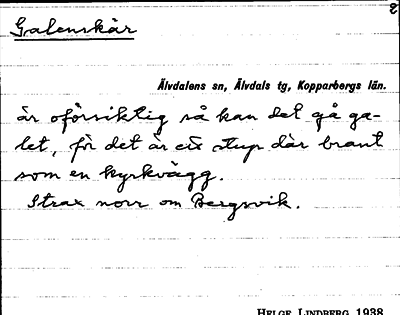 8
Galenskär
Älvdalens sn, Älvdals tg, Kopparbergs län.
är oförsiktig så kan det gå ga-
let, för det är ett stup där brant
som en kyrkvägg.
Strax norr om Bergsvik.
HELGE LINDBERG 1938